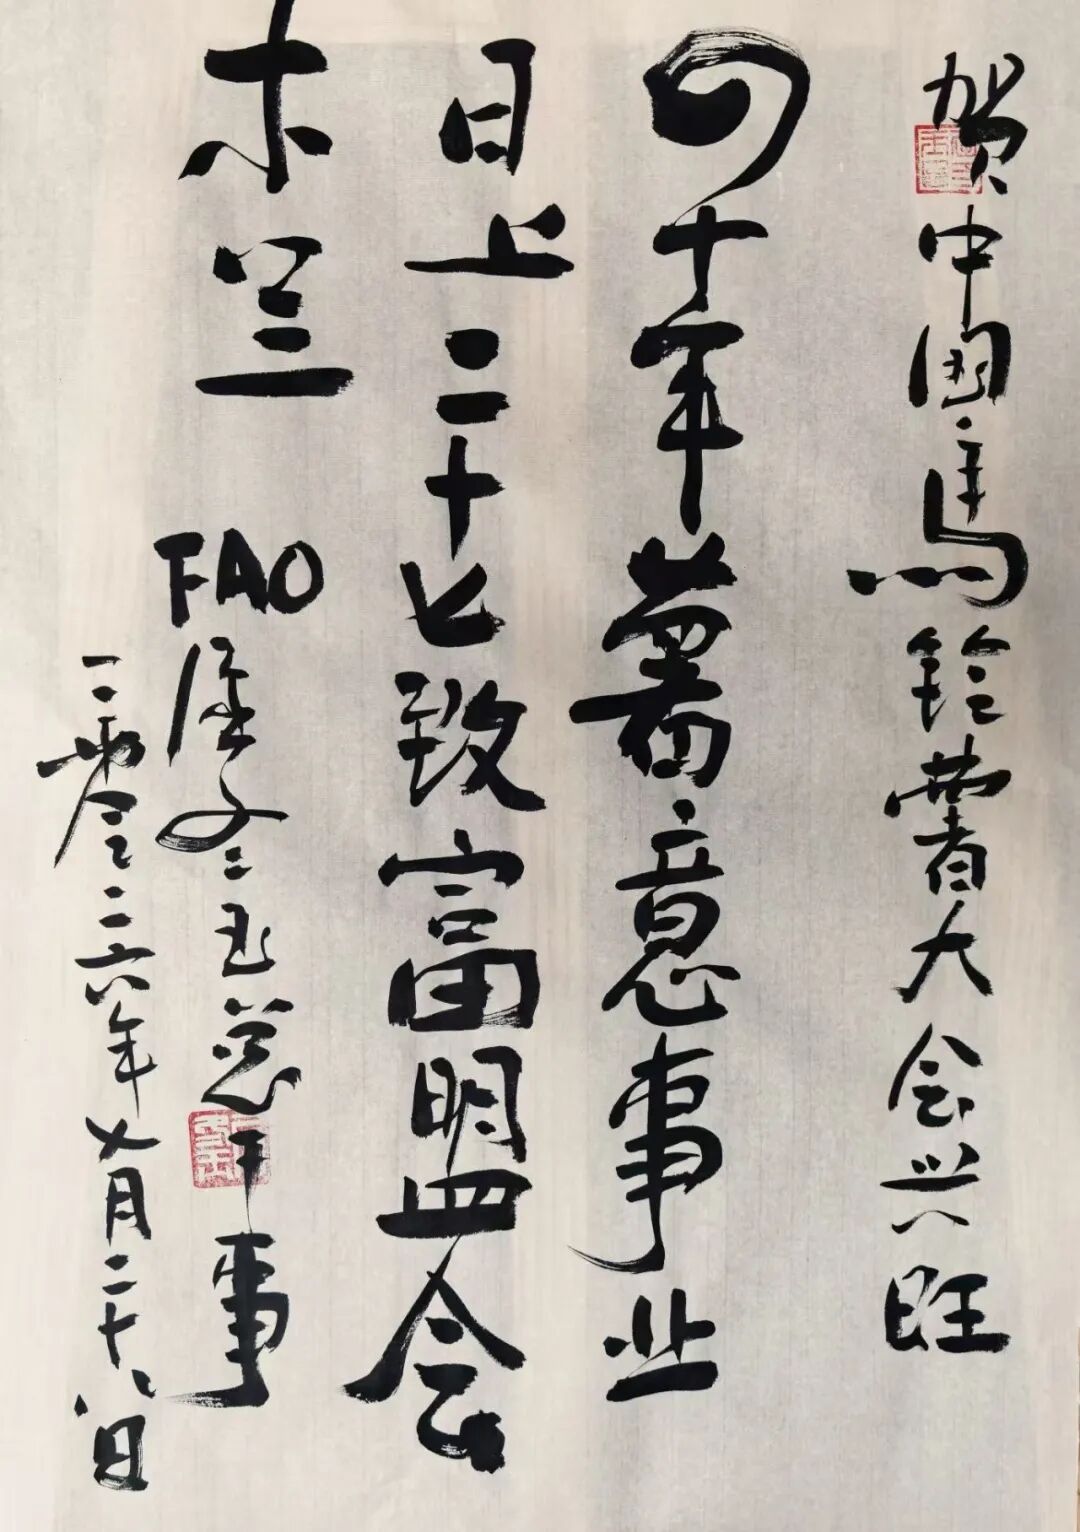 贺中国马铃薯大会兴旺
四十年薯意事业
日上二十七致富盟会
木兰
FAO屈冬玉总干事
二零二六年七月二十八日